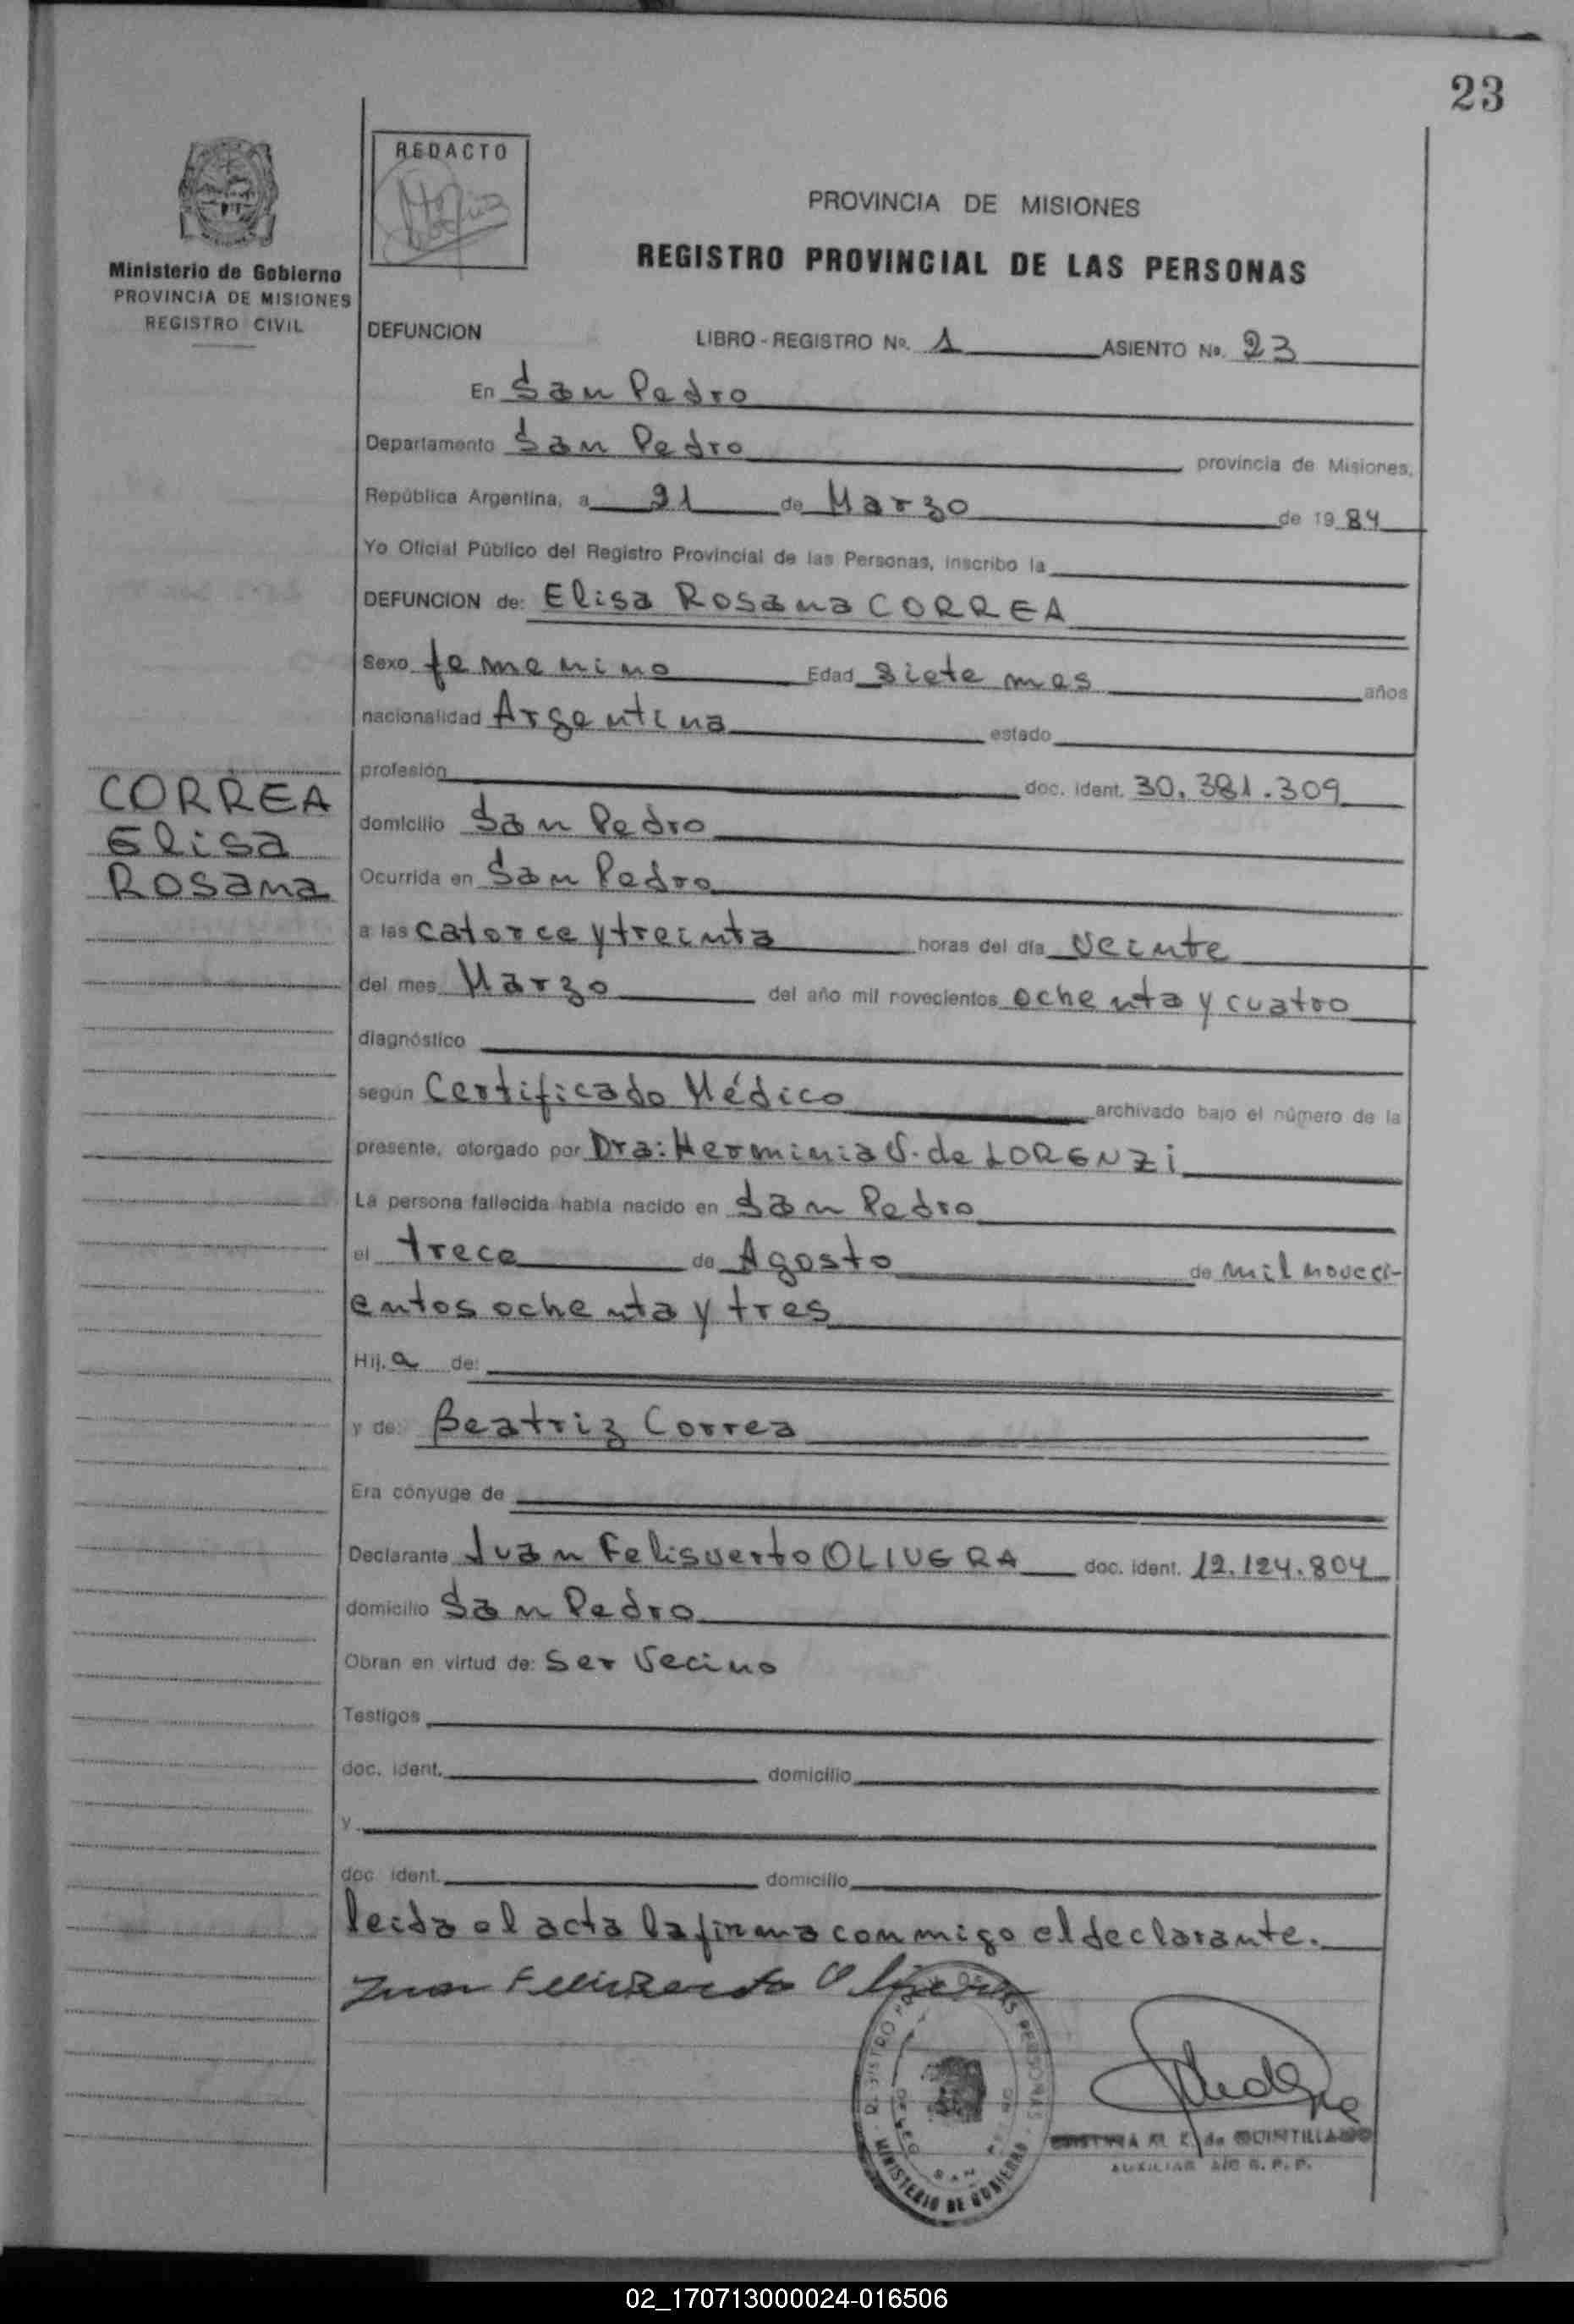 23
REDACTO
Ministerio de Gobierno
PROVINCIA DE MISIONES
REGISTRO CIVIL
PROVINCIA DE MISIONES
REGISTRO PROVINCIAL DE LAS PERSONAS
DEFUNCION LIBRO - REGISTRO Nº. 1 ASIENTO Nº. 23
En San Pedro
Departamento San Pedro provincia de Misiones,
República Argentina, a 21 de Marzo de 1984
Yo Oficial Público del Registro Provincial de las Personas, inscribo la
DEFUNCION de: Elisa Rosana CORREA
Sexo femenino Edad siete mes años
nacionalidad Argentina estado
profesión doc. ident. 30.381.309
CORREA
Elisa
Rosana
domicilio San Pedro
Ocurrida en San Pedro
a las catorce y treinta horas del día veinte
del mes Marzo del año mil novecientos ochenta y cuatro
diagnóstico
según Certificado Médico archivado bajo el número de la
presente, otorgado por Dra: Herminia V. de LORENZi
La persona fallecida había nacido en San Pedro
el trece de Agosto de mil noveci-
entos ochenta y tres
Hij.a de:
y de: Beatriz Correa
Era cónyuge de
Declarante Juan Felisverto OLIVERA doc. ident. 12.124.804
domicilio San Pedro
Obran en virtud de: Ser Vecino
Testigos
doc. ident. domicilio
y
doc. ident. domicilio
leida el acta la firma conmigo el declarante.
Juan Felisberto Olivera
MINISTERIO DE GOBIERNO
M. E. de QUINTILLANO
AUXILIAR A/C R. P. P.
02_170713000024-016506